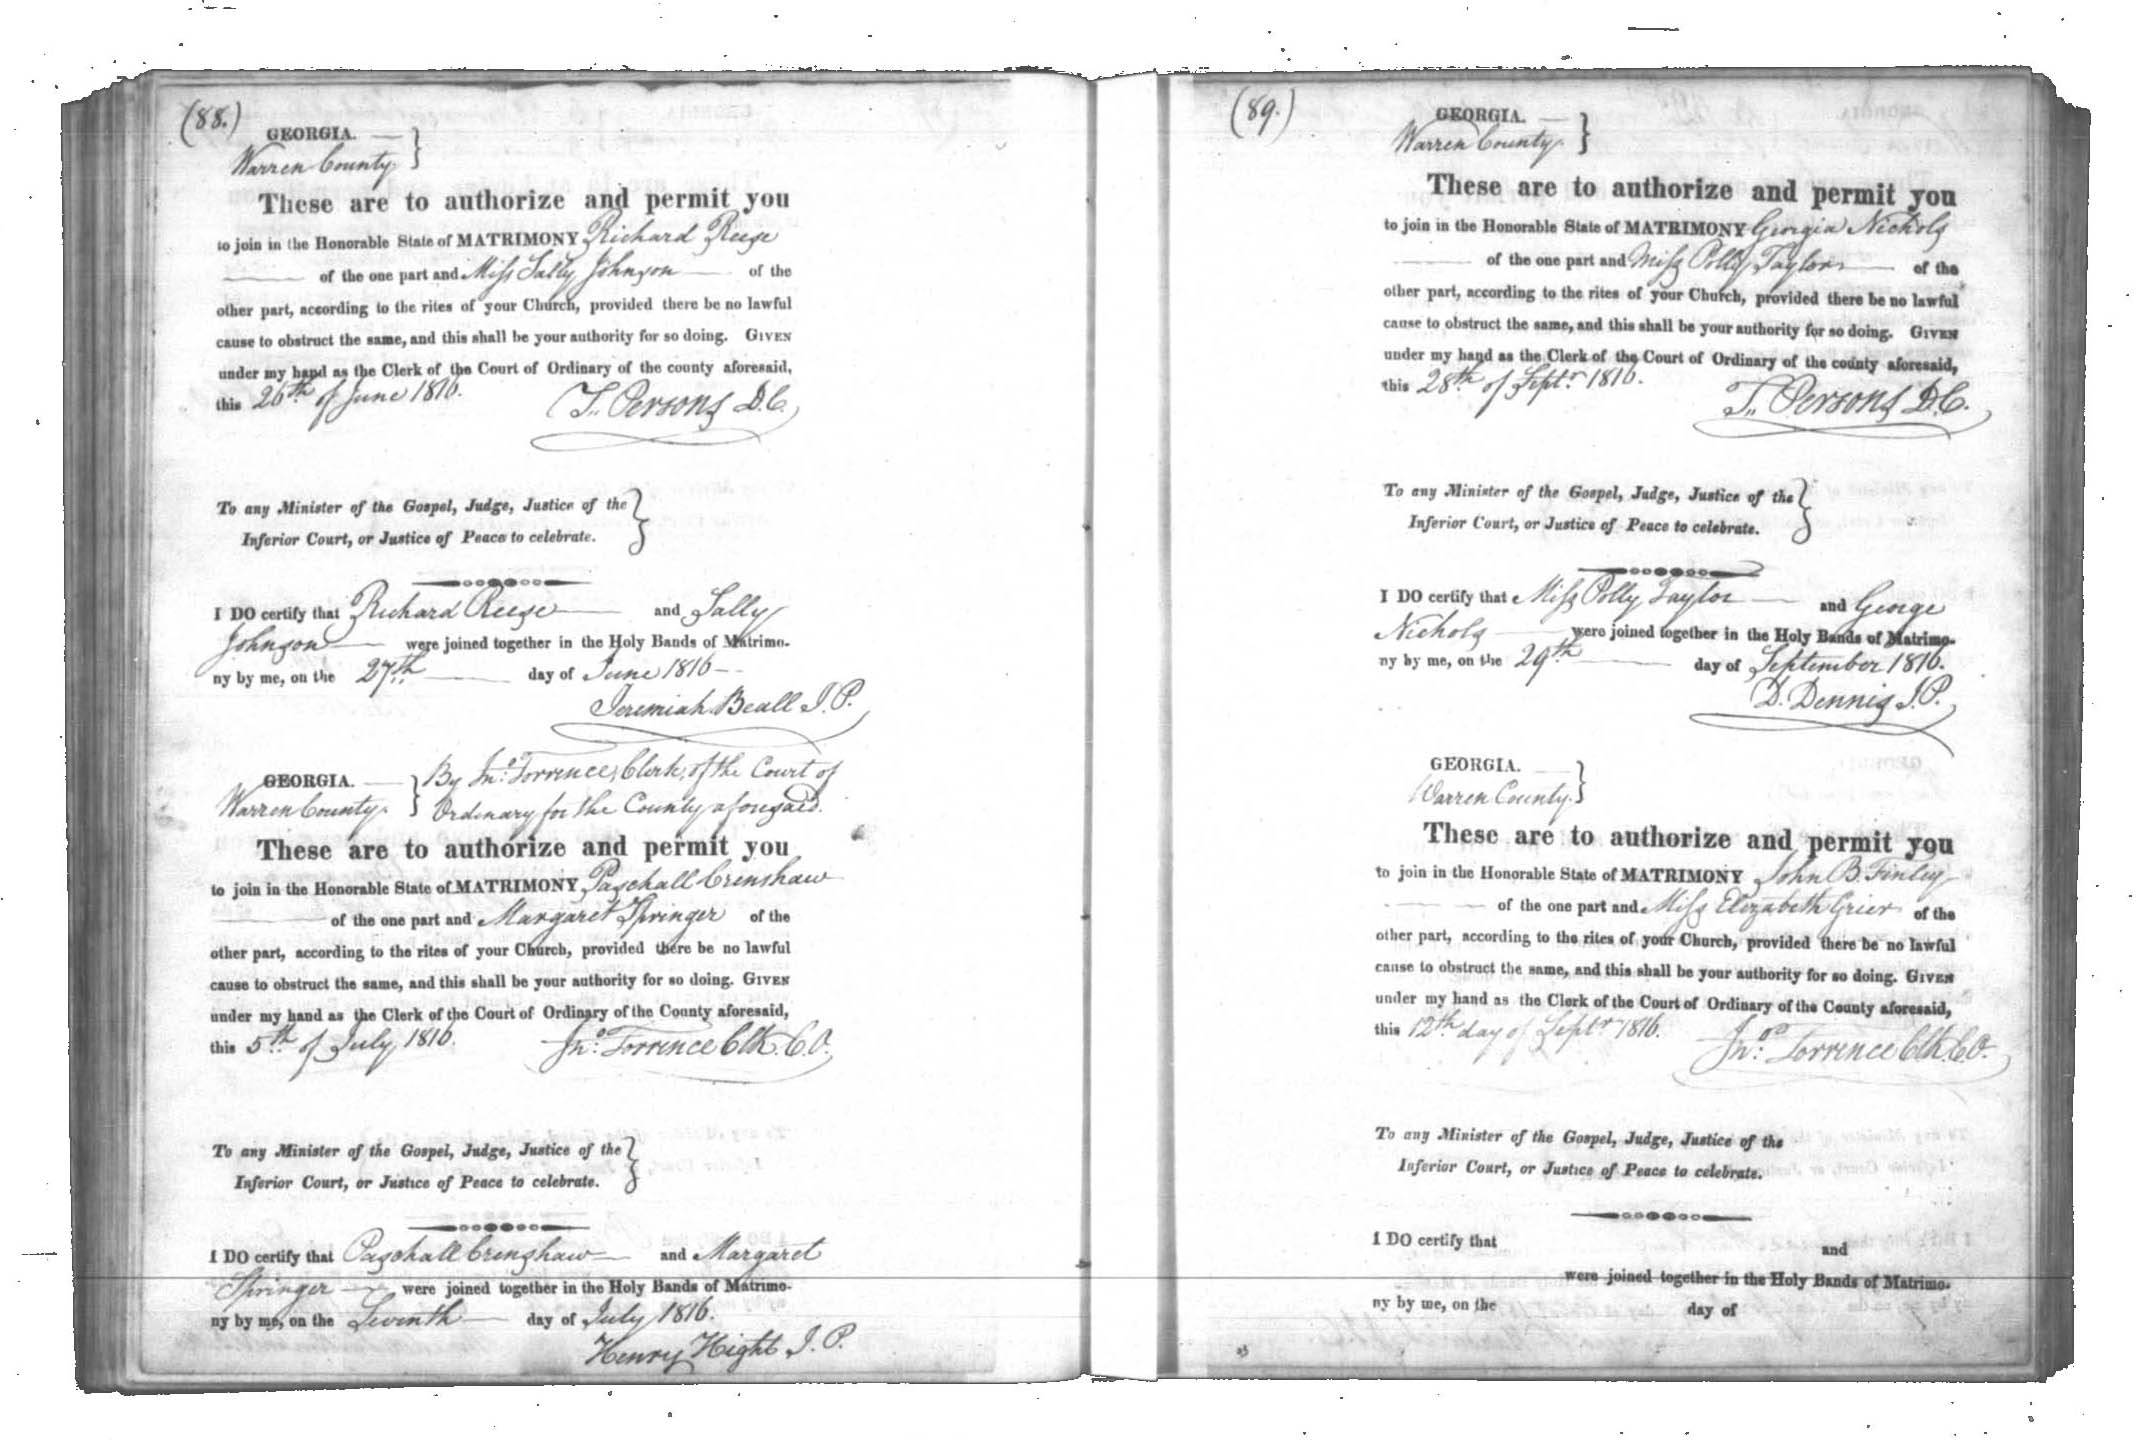 (88.)
GEORGIA.
Warren County. }
These are to authorize and permit you
to join in the Honorable State of MATRIMONY Richard Reese
of the one part and Miss Sally Johnson of the
other part, according to the rites of your Church, provided there be no lawful
cause to obstruct the same, and this shall be your authority for so doing. GIVEN
under my hand as the Clerk of the Court of Ordinary of the county aforesaid,
this 26th of June 1816.
T. Persons D.C.
To any Minister of the Gospel, Judge, Justice of the }
Inferior Court, or Justice of Peace to celebrate.
I DO certify that Richard Reese and Sally
Johnson were joined together in the Holy Bands of Matrimo-
ny by me, on the 27th day of June 1816
Jeremiah Beall J.P.
GEORGIA. } By Jno. Torrence, Clerk, of the Court of
Warren County. Ordinary for the County aforesaid.
These are to authorize and permit you
to join in the Honorable State of MATRIMONY Paschall Crenshaw
of the one part and Margaret Springer of the
other part, according to the rites of your Church, provided there be no lawful
cause to obstruct the same, and this shall be your authority for so doing. GIVEN
under my hand as the Clerk of the Court of Ordinary of the County aforesaid,
this 5th of July 1816.
Jno. Torrence Clk. C.O.
To any Minister of the Gospel, Judge, Justice of the }
Inferior Court, or Justice of Peace to celebrate.
I DO certify that Paschall Crenshaw and Margaret
Springer were joined together in the Holy Bands of Matrimo-
ny by me, on the Seventh day of July 1816.
Henry Hight J.P.
(89.)
GEORGIA.
Warren County. }
These are to authorize and permit you
to join in the Honorable State of MATRIMONY Georgia Nichols
of the one part and Miss Polly Taylor of the
other part, according to the rites of your Church, provided there be no lawful
cause to obstruct the same, and this shall be your authority for so doing. GIVEN
under my hand as the Clerk of the Court of Ordinary of the county aforesaid,
this 28th of Septr. 1816.
T. Persons D.C.
To any Minister of the Gospel, Judge, Justice of the }
Inferior Court, or Justice of Peace to celebrate.
I DO certify that Miss Polly Taylor and George
Nichols were joined together in the Holy Bands of Matrimo-
ny by me, on the 29th day of September 1816.
D. Dennis J.P.
GEORGIA.
Warren County. }
These are to authorize and permit you
to join in the Honorable State of MATRIMONY John B. Finley
of the one part and Miss Elizabeth Grier of the
other part, according to the rites of your Church, provided there be no lawful
cause to obstruct the same, and this shall be your authority for so doing. GIVEN
under my hand as the Clerk of the Court of Ordinary of the County aforesaid,
this 12th day of Septr 1816.
Jno. Torrence Clk. C.O.
To any Minister of the Gospel, Judge, Justice of the
Inferior Court, or Justice of Peace to celebrate.
I DO certify that and
were joined together in the Holy Bands of Matrimo-
ny by me, on the day of